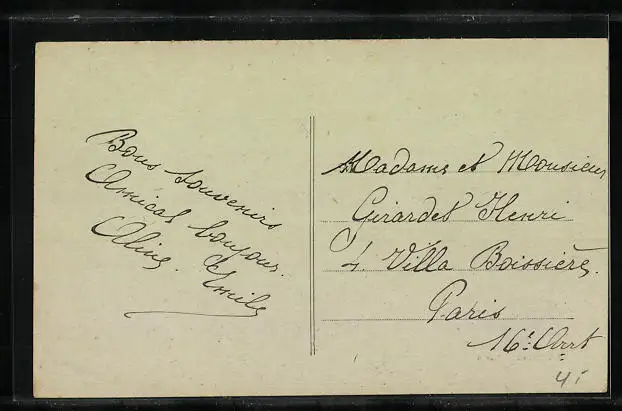 Bons souvenirs
Amical bonjour.
Aline. Emile
Madame et Monsieur
Girardet Henri
4 Villa Boissière.
Paris
16e Arrt